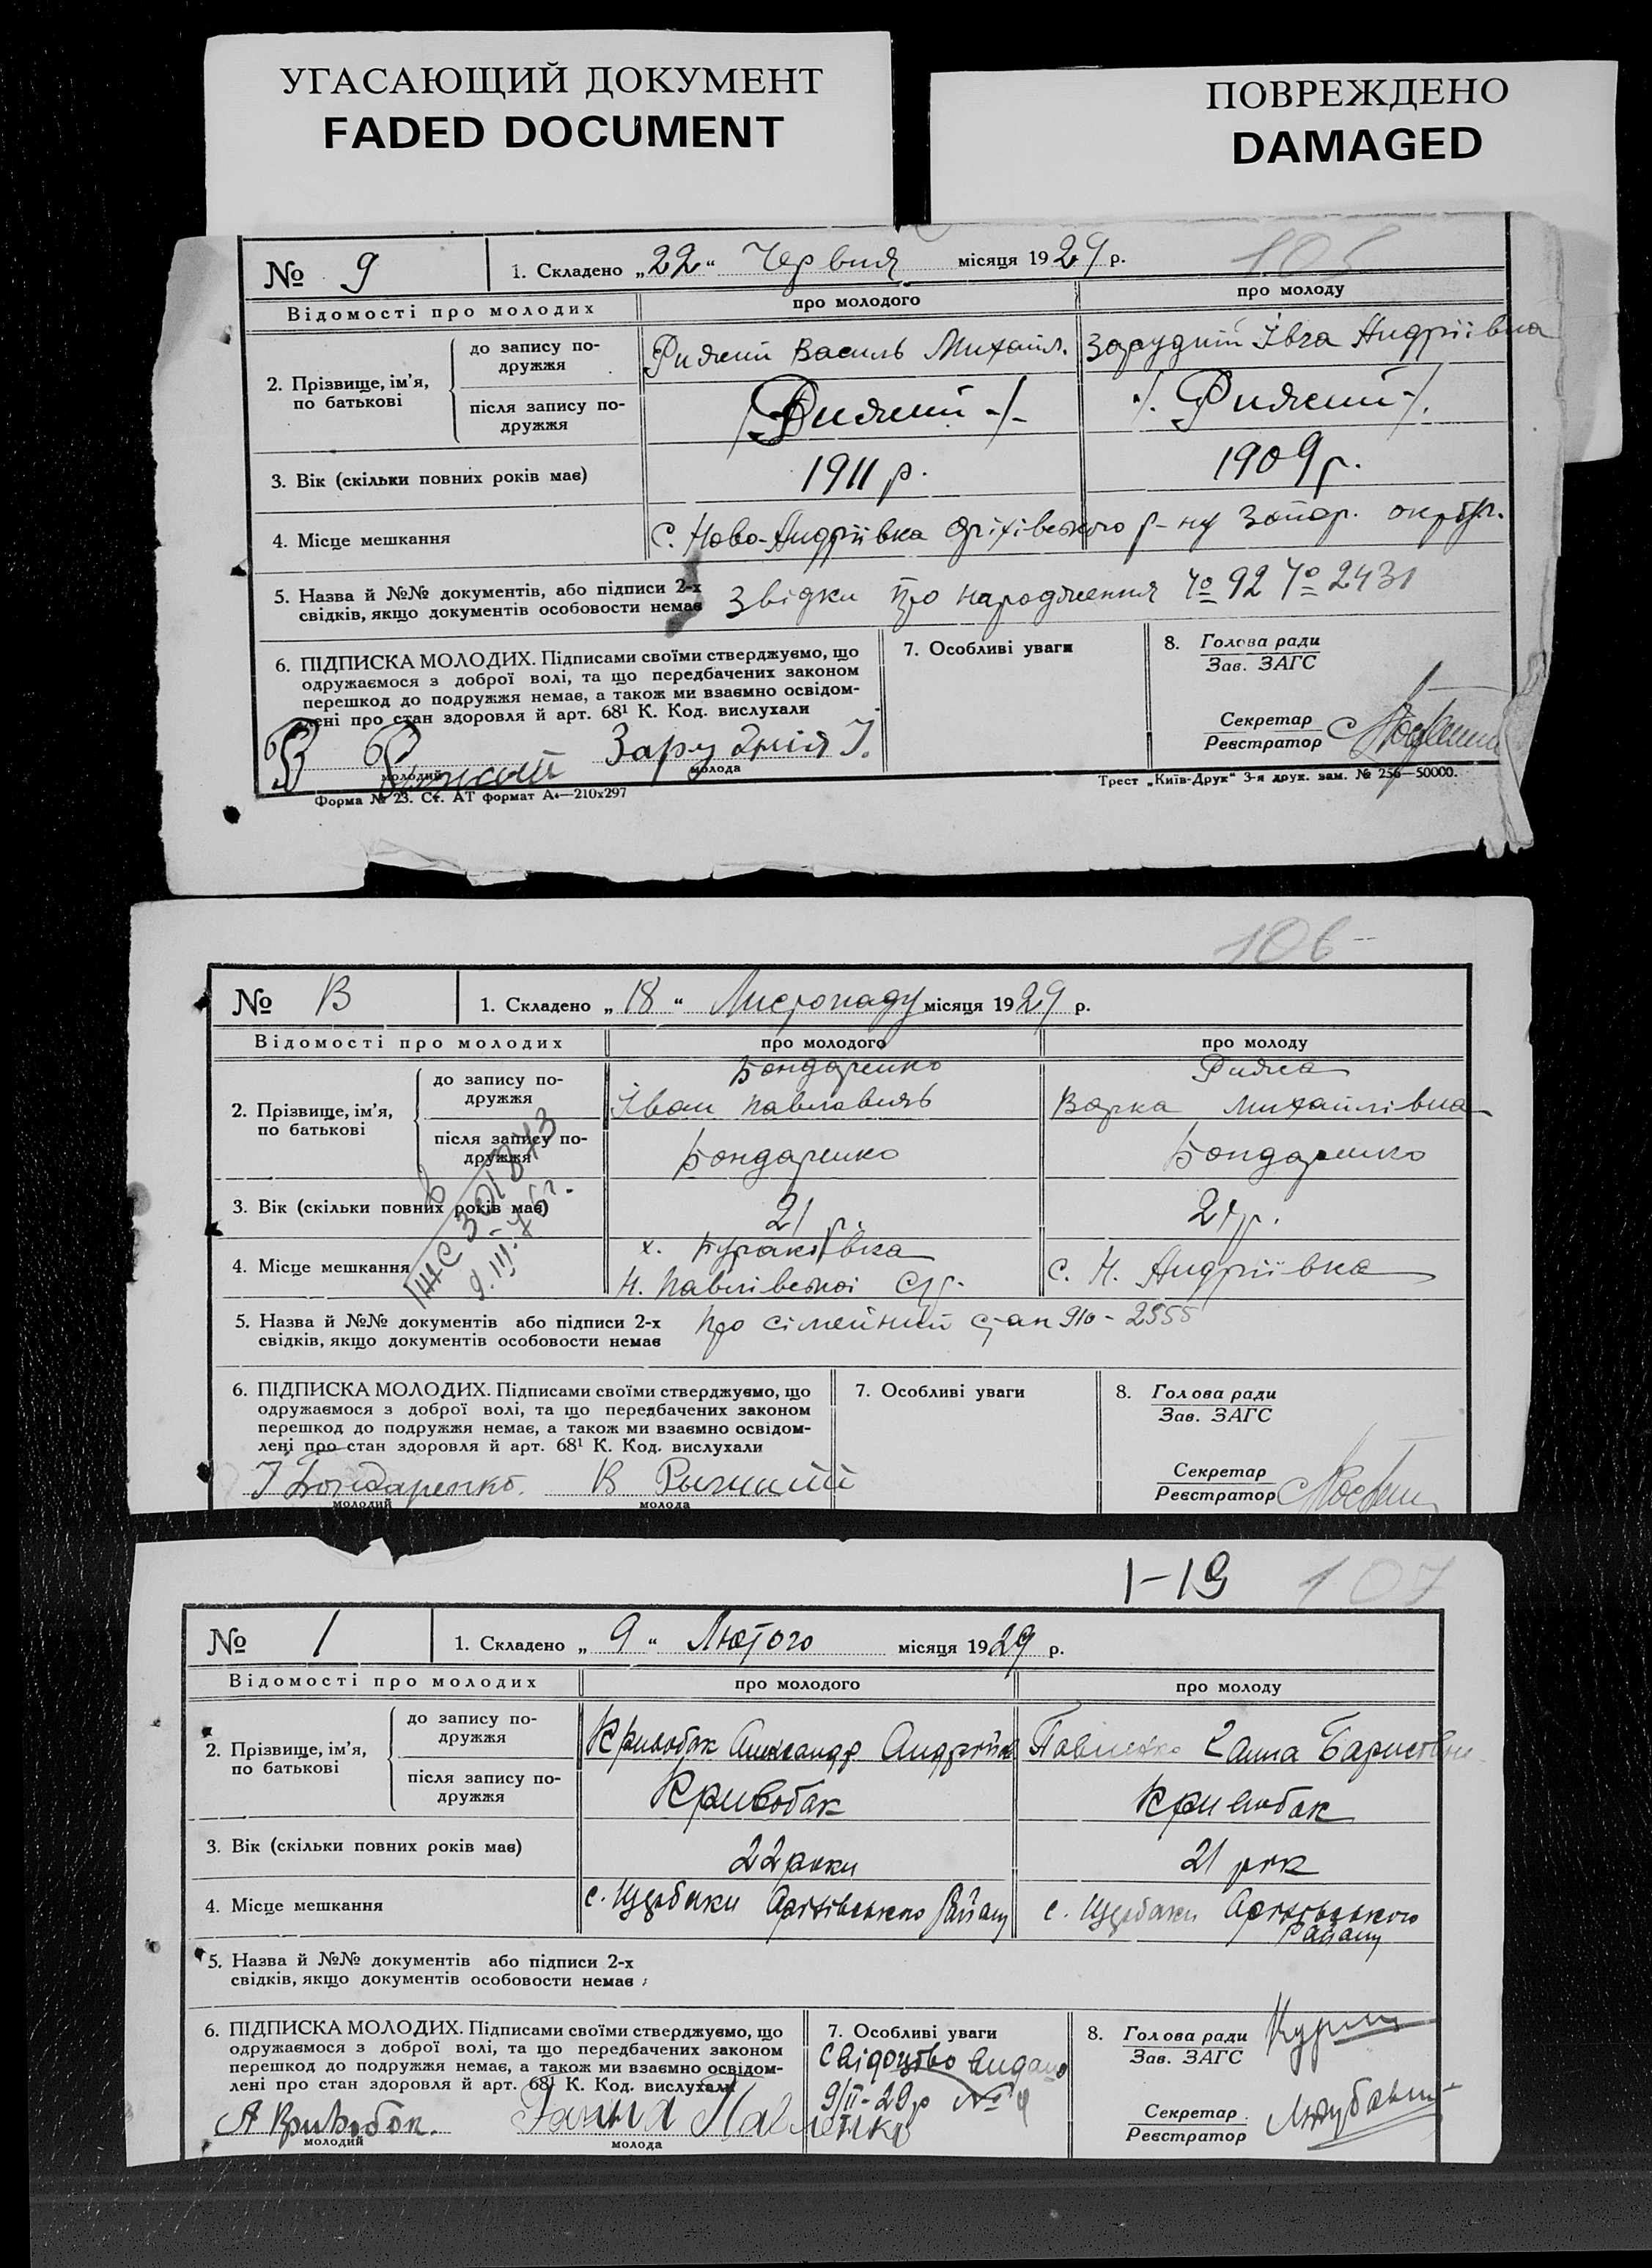 УГАСАЮЩИЙ ДОКУМЕНТ
FADED DOCUMENT
ПОВРЕЖДЕНО
DAMAGED
105
№ 9 1. Складено „22“ Червня місяця 1929 р.
Відомості про молодих про молодого про молоду
2. Прізвище, ім’я, по батькові
до запису подружжя Василь Михайл. Зарудній Івга Андріївна
після запису подружжя
3. Вік (скільки повних років має) 1911 р. 1909 р.
4. Місце мешкання с. Ново-Андріївка Оріхівського р-ну Запор. округи.
5. Назва й №№ документів, або підписи 2-х
свідків, якщо документів особовости немає
Звідки про народження № 92 № 2431
6. ПІДПИСКА МОЛОДИХ. Підписами своїми стверджуємо, що
одружаємося з доброї волі, та що передбачених законом
перешкод до подружжя немає, а також ми взаємно освідом-
лені про стан здоровля й арт. 68¹ К. Код. вислухали
Зарудній І.
молодий молода
7. Особливі уваги
8. Голова ради
Зав. ЗАГС
Секретар
Реєстратор
Форма № 23. Ст. АТ формат А₄—210х297
Трест „Київ-Друк“ 3-я друк. зам. № 256—50000.
106
№ В 1. Складено „18“ Листопаду місяця 1929 р.
Відомості про молодих про молодого про молоду
2. Прізвище, ім’я, по батькові
до запису подружжя
Бондаренко
Іван Павлович Варка Михайлівна
після запису подружжя Бондаренко Бондаренко
3. Вік (скільки повних років має) 21 р. 21 р.
4. Місце мешкання
х. Бураківка
Н. Павлівської с/р. с. Н. Андріївка
9.III-
5. Назва й №№ документів або підписи 2-х
свідків, якщо документів особовости немає
про сімейний стан 910 - 2555
6. ПІДПИСКА МОЛОДИХ. Підписами своїми стверджуємо, що
одружаємося з доброї волі, та що передбачених законом
перешкод до подружжя немає, а також ми взаємно освідом-
лені про стан здоровля й арт. 68¹ К. Код. вислухали
І Бондаренко. В
молодий молода
7. Особливі уваги
8. Голова ради
Зав. ЗАГС
Секретар
Реєстратор
1-19 107
№ 1 1. Складено „9“ Лютого місяця 1929 р.
Відомості про молодих про молодого про молоду
2. Прізвище, ім’я, по батькові
до запису подружжя Кривобак Александр Андрійов Павленко Ганна Барисовна
після запису подружжя Кривобак Кривобак
3. Вік (скільки повних років має) 22 роки 21 рік
4. Місце мешкання с. Щербаки Аріхівського Району с. Щербаки Аріхівського Району
5. Назва й №№ документів або підписи 2-х
свідків, якщо документів особовости немає
6. ПІДПИСКА МОЛОДИХ. Підписами своїми стверджуємо, що
одружаємося з доброї волі, та що передбачених законом
перешкод до подружжя немає, а також ми взаємно освідом-
лені про стан здоровля й арт. 68¹ К. Код. вислухали
А Кривобок. Ганна Павленко
молодий молода
7. Особливі уваги
Свідоцтво видано
9/II-29р №
8. Голова ради
Зав. ЗАГС
Секретар
Реєстратор